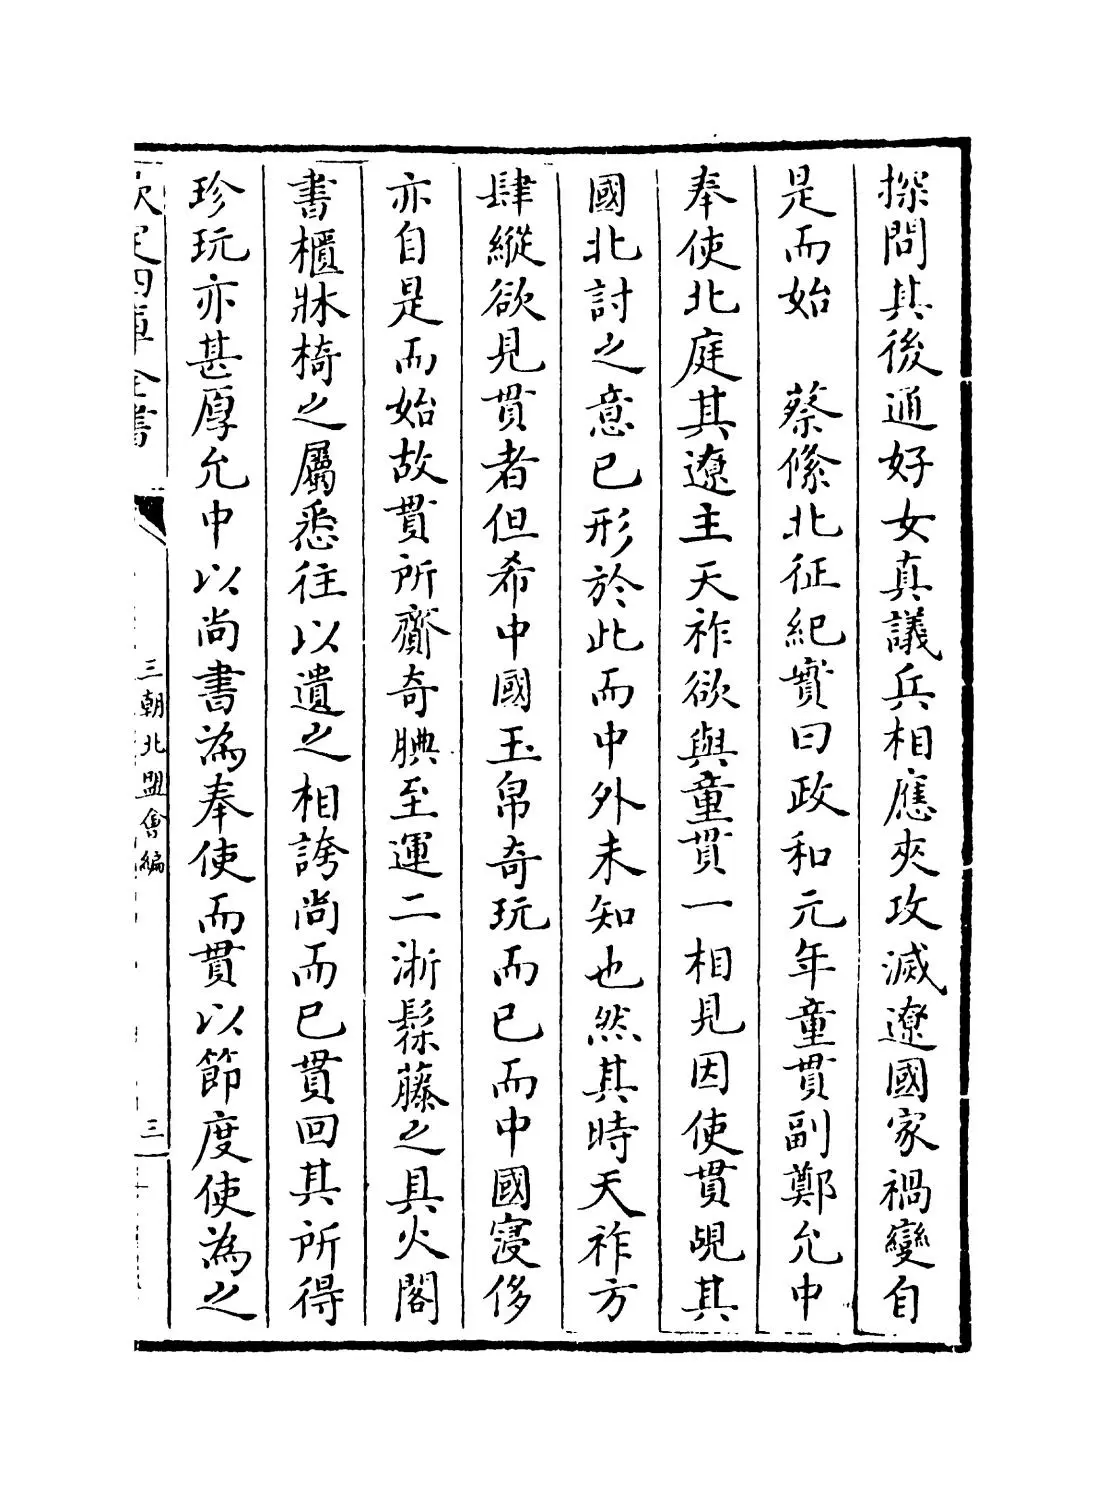 探問其後通好女真議兵相應夾攻滅遼國家禍變自
是而始　蔡絛北征紀實曰政和元年童貫副鄭允中
奉使北庭其遼主天祚欲與童貫一相見因使貫覘其
國北討之意已形於此而中外未知也然其時天祚方
肆縱欲見貫者但希中國玉帛奇玩而已而中國寖侈
亦自是而始故貫所齎奇腆至運二浙髹藤之具火閣
書櫃牀椅之屬悉往以遺之相誇尚而已貫回其所得
珍玩亦甚厚允中以尚書為奉使而貫以節度使為之
欽定四庫全書
三朝北盟會編
三